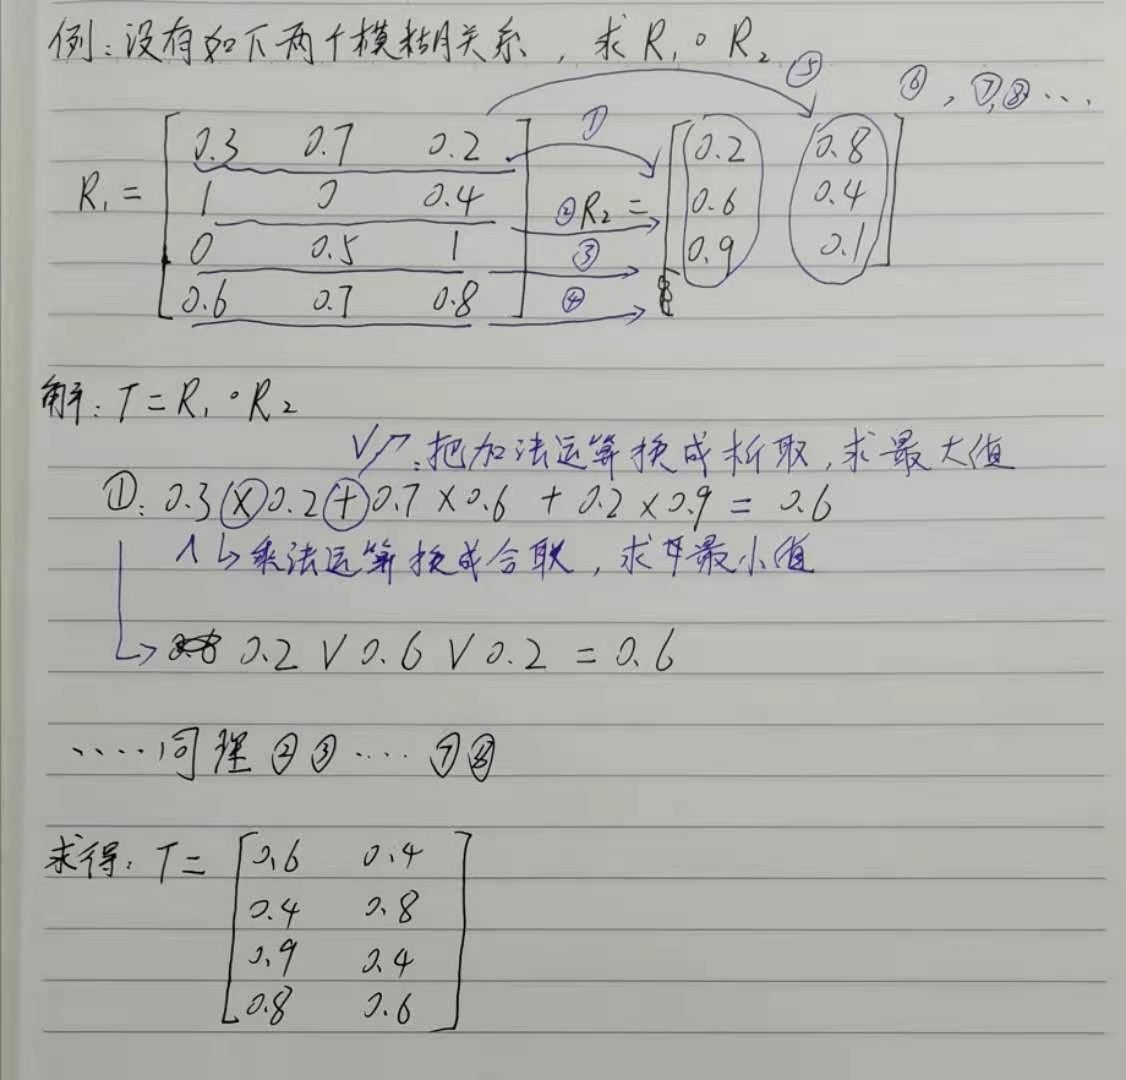 例:没有如下两个模糊关系,求 R₁∘R₂
⑤ ⑥,⑦,⑧…
R₁ = [0.3 0.7 0.2 ① R₂ = [0.2 0.8
1 0 0.4 ② 0.6 0.4
0 0.5 1 ③ 0.9 0.1]
0.6 0.7 0.8] ④
解:T=R₁∘R₂
∨↗:把加法运算换成析取,求最大值
①:0.3×0.2+0.7×0.6+0.2×0.9=0.6
∧↳乘法运算换成合取,求最小值
↳ 0.2∨0.6∨0.2=0.6
……同理②③……⑦⑧
求得:T= [0.6 0.4
0.4 0.8
0.9 0.4
0.8 0.6]